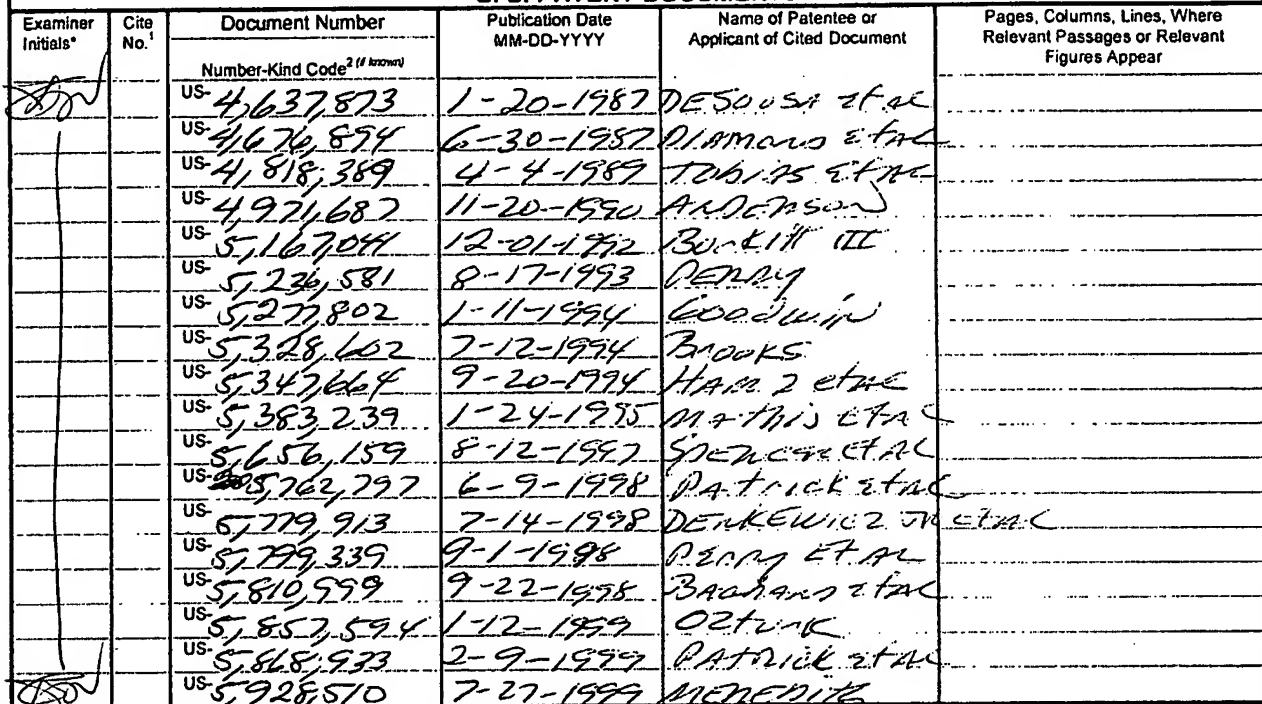 Examiner Initials* Cite No.1 Document Number Publication Date MM-DD-YYYY Name of Patentee or Applicant of Cited Document Pages, Columns, Lines, Where Relevant Passages or Relevant Figures Appear
Number-Kind Code2 (if known)
US- 4,637,873 1-20-1987 DESOUSA et al
US- 4,676,894 6-30-1987 DIAMOND et al
US- 4,818,389 4-4-1989 TOBIAS et al
US- 4,971,687 11-20-1990 ANDERSON
US- 5,167,041 12-01-1992 Burkitt III
US- 5,236,581 8-17-1993 PERRY
US- 5,277,802 1-11-1994 Goodwin
US- 5,328,602 7-12-1994 Brooks
US- 5,347,664 9-20-1994 et al
US- 5,383,239 1-24-1995 Mathis et al
US- 5,656,159 8-12-1997 Spencer et al
US- 5,762,797 6-9-1998 Patrick et al
US- 5,779,913 7-14-1998 DENKEWICZ JR et al
US- 5,799,339 9-1-1998 Perry et al
US- 5,810,999 9-22-1998 et al
US- 5,857,594 1-12-1999 Ozturk
US- 5,868,933 2-9-1999 PATRICK et al
US- 5,928,510 7-27-1999 MEREDITH